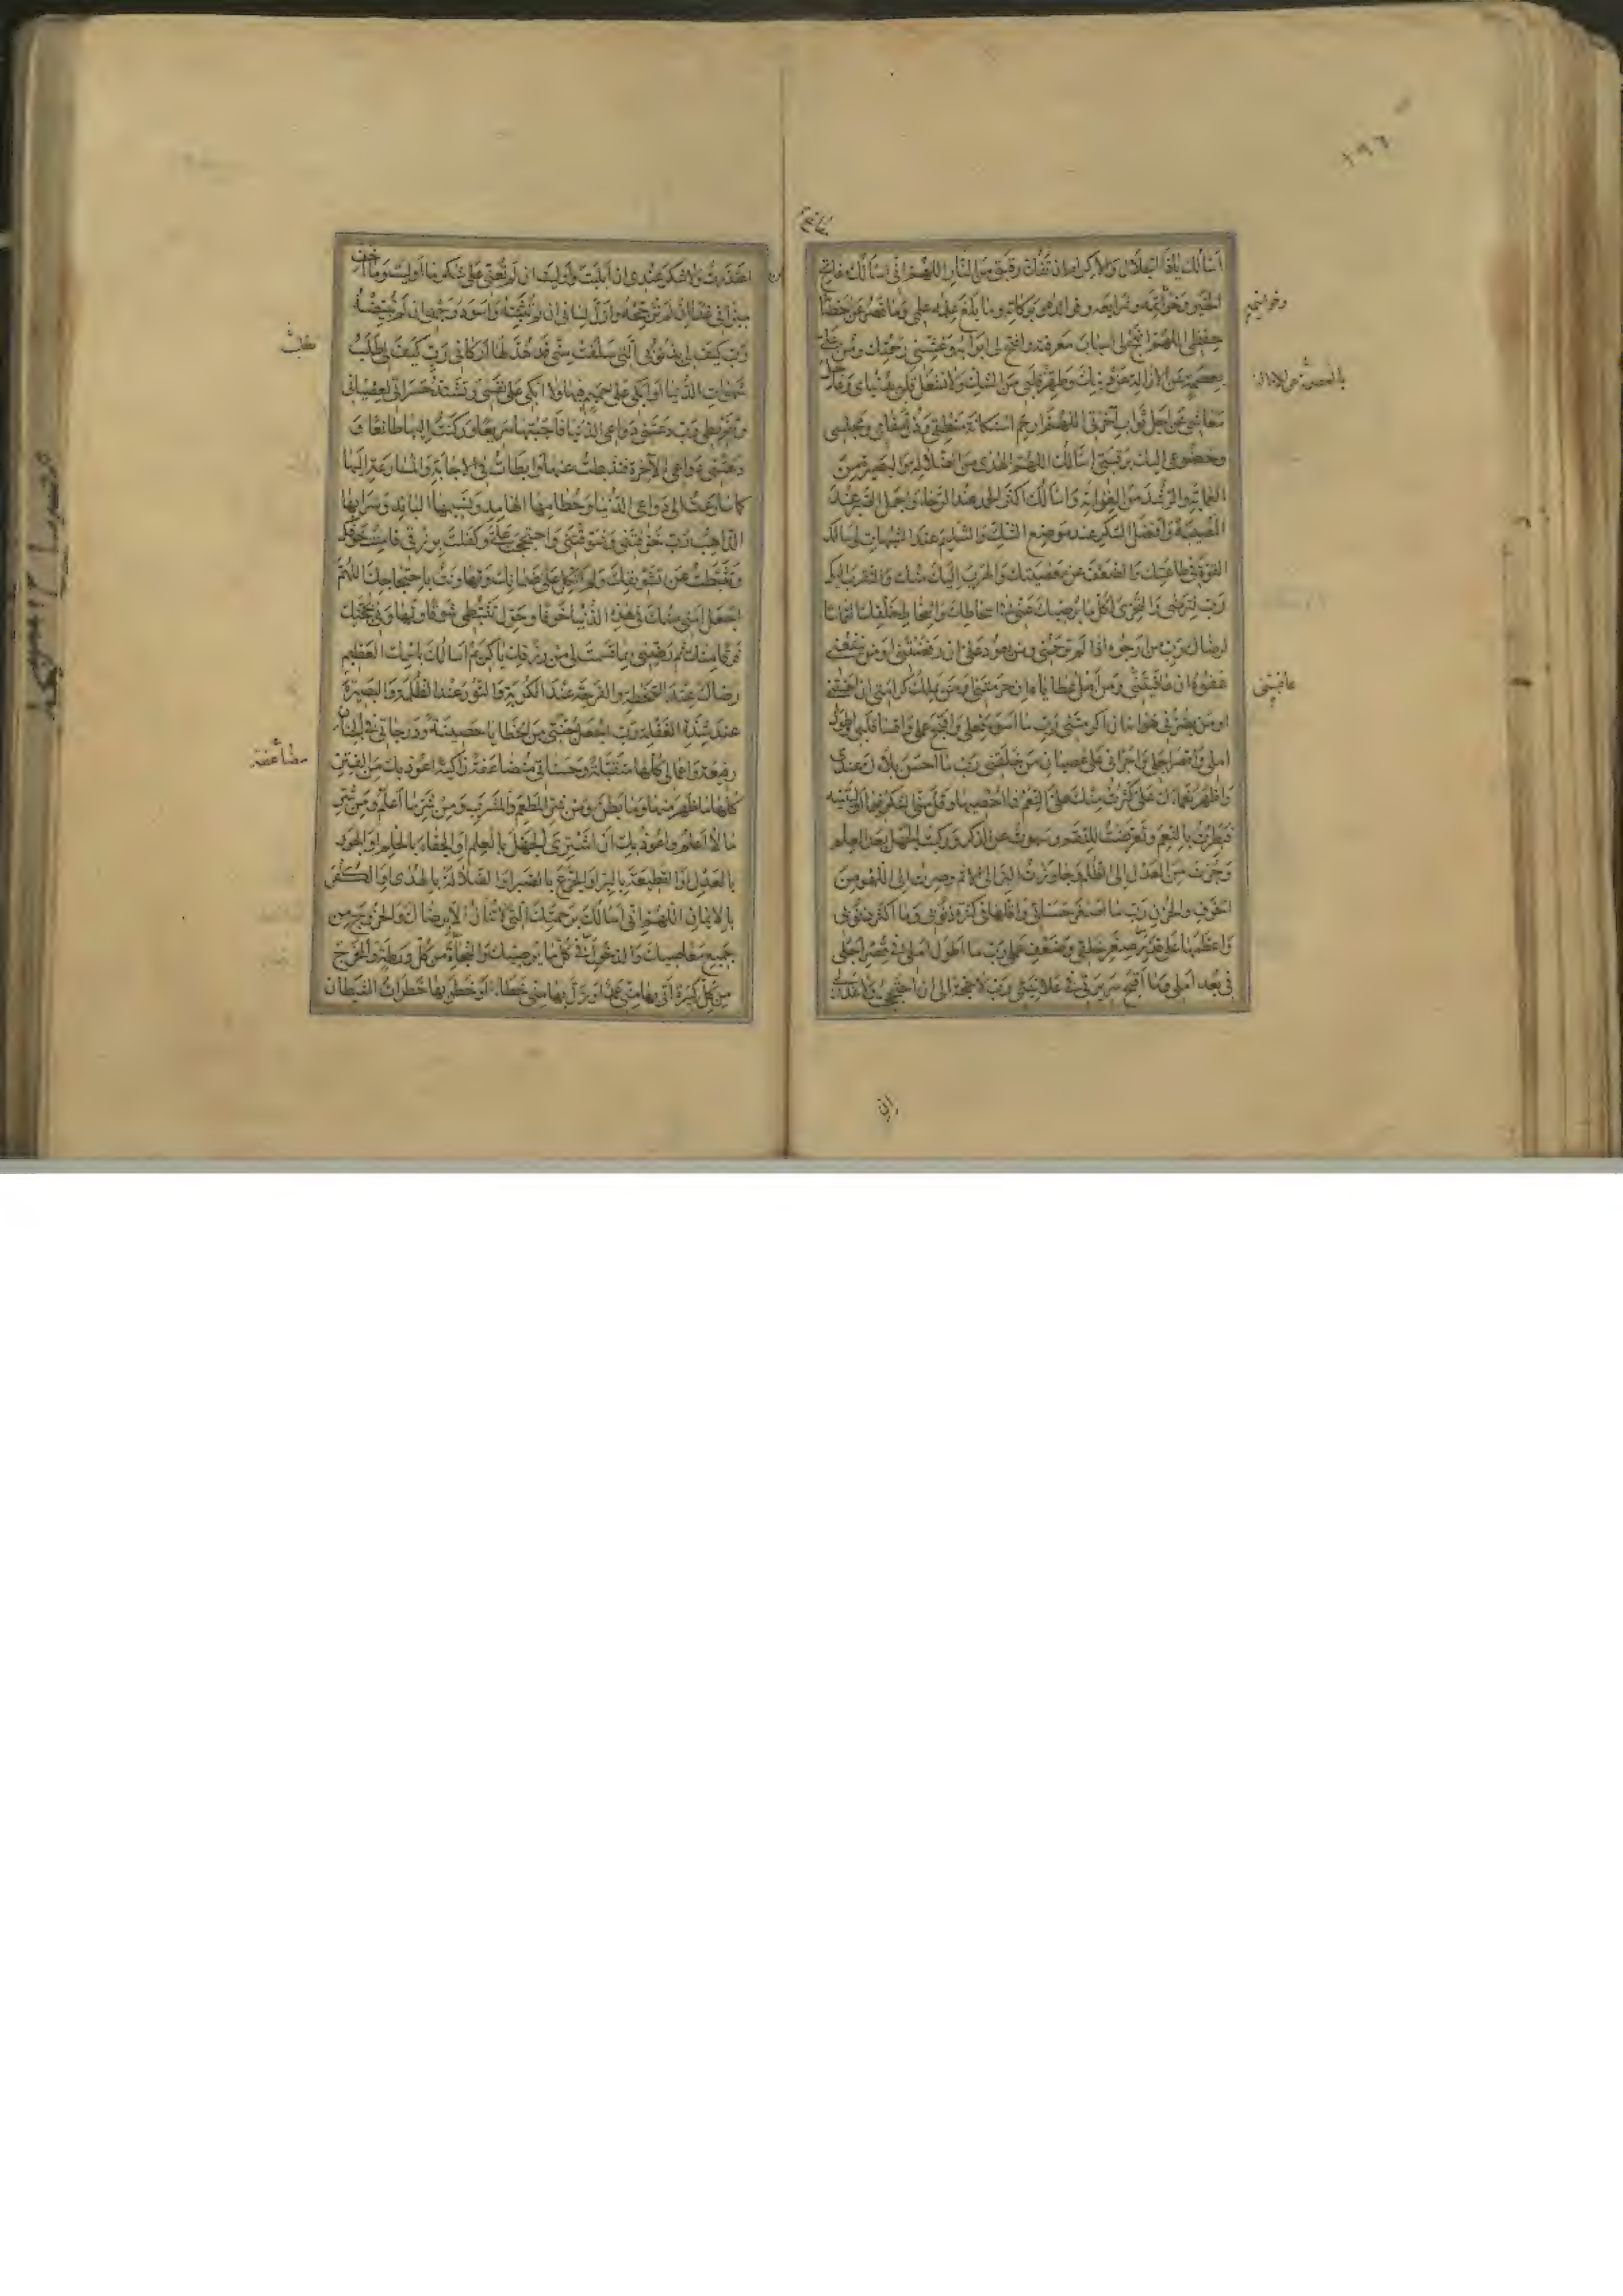 ١٩٦
أسألك يا ذا الجلال والإكرام أن تفك رقبتي من النار اللهم إني أسألك فواتح
الخير وخواتمه وشرايعه وفوائده وبركاته وما بلغ علمه علمي وما قصر عن إحصائه
حفظي اللهم انهج لي أسباب معرفته وافتح لي أبوابه وغشني رحمتك ومن علي
بعصمة عن الإزالة عن دينك وطهر قلبي من الشك ولا تشغل قلبي بدنياي وعاجل
معاشي عن آجل ثواب آخرتي اللهم ارحم استكانة منطقي وذل مقامي ومجلسي
وخضوعي إليك برقبتي أسألك اللهم الهدى من الضلالة والبصيرة من
العماية والرشد من الغواية وأسألك أكثر الحمد عند الرخاء وأجمل الصبر عند
المصيبة وأفضل الشكر عند موضع الشك والتسليم عند الشبهات أسألك
القوة في طاعتك والضعف عن معصيتك والهرب إليك منك والتقرب إليك
رب لترضى والتحري لكل ما يرضيك عني في إسخاط خلقك التماسا
لرضاك رب من أرجوه إذا لم ترحمني ومن يعود علي إن رفضتني أو من ينفعني
عفوه إن عاقبتني ومن آمل عطاياه إن حرمتني ومن يملك كرامتي إن أهنتني
أو من يضرني هوانه إن أكرمتني رب ما أسوء فعلي وأقبح عملي وأقسا قلبي وأطول
أملي وأقصر أجلي وأجرأني على عصيان من خلقني رب ما أحسن بلاءك عندي
وأظهر نعماءك علي كثرت منك علي النعم فما أحصيها وقل مني الشكر فيما أوليتنيه
فبطرت بالنعم وتعرضت للنقم وسهوت عن الذكر وركبت الجهل بعد العلم
وجزت من العدل إلى الظلم وجاوزت البر إلى الإثم وصرت إلى اللهو من
الخوف والحزن رب ما أصغر حسناتي وأقلها في كثرة ذنوبي وما أكثر ذنوبي
وأعظمها على قدر صغر خلقي وضعف عملي رب ما أطول أملي في قصر أجلي
في بعد أملي وما أقبح سريرتي في علانيتي رب لا حجة لي إن احتججت ولا عذر لي
وخواتيمه
عاقبتني
إن
اعتذرت ولا شكر عندي إن أبليت وأوليت إن لم تعني على شكر ما أوليت وما أخف
ميزاني غدا إن لم ترجحه وأزل لساني إن لم تثبته وأسود وجهي إن لم تبيضه
رب كيف لي بذنوبي التي سلفت مني قد هد لها أركاني رب كيف لي أطلب
شهوات الدنيا أو أبكي على حميم فيها ولا أبكي على نفسي وتشتد حسراتي لعصياني
وتفريطي رب دعتني دواعي الدنيا فأجبتها سريعا وركنت إليها طائعا و
دعتني دواعي الآخرة فتثبطت عنها وأبطأت في الإجابة والمسارعة إليها
كما سارعت إلى دواعي الدنيا وحطامها الهامد ونسيمها البائد وشرابها
الذاهب رب خوفتني وشوقتني واحتججت علي وكفلت برزقي فأمنت خوفك
وتثبطت عن تشويقك ولم أتكل على ضمانك وتهاونت باحتجاجك اللهم
اجعل أمني منك في هذه الدنيا خوفا وحول تثبطي شوقا وتهاوني بحجتك
فرقا منك ثم رضني بما قسمت لي من رزقك يا كريم أسألك باسمك العظيم
رضاك عند السخطة والفرجة عند الكربة والنور عند الظلمة والبصيرة
عند شدة الغفلة رب اجعل جنتي من الخطايا حصينة ودرجاتي في الجنان
رفيعة وأعمالي كلها متقبلة وحسناتي مضاعفة زاكية أعوذ بك من الفتن
كلها ما ظهر منها وما بطن ومن شر المطعم والمشرب ومن شر ما أعلم ومن شر
ما لا أعلم وأعوذ بك أن أشتري الجهل بالعلم أو الجفاء بالحلم أو الجور
بالعدل أو القطيعة بالبر أو الجزع بالصبر أو الضلالة بالهدى أو الكفر
بالإيمان اللهم إني أسألك برحمتك التي لا تنال إلا برضاك والخروج من
جميع معاصيك والدخول في كل ما يرضيك والنجاة من كل ورطة والمخرج
من كل كبيرة أتى بها مني عمد أو زل بها مني خطأ أو خطر بها خطرات الشيطان
مضاعفة